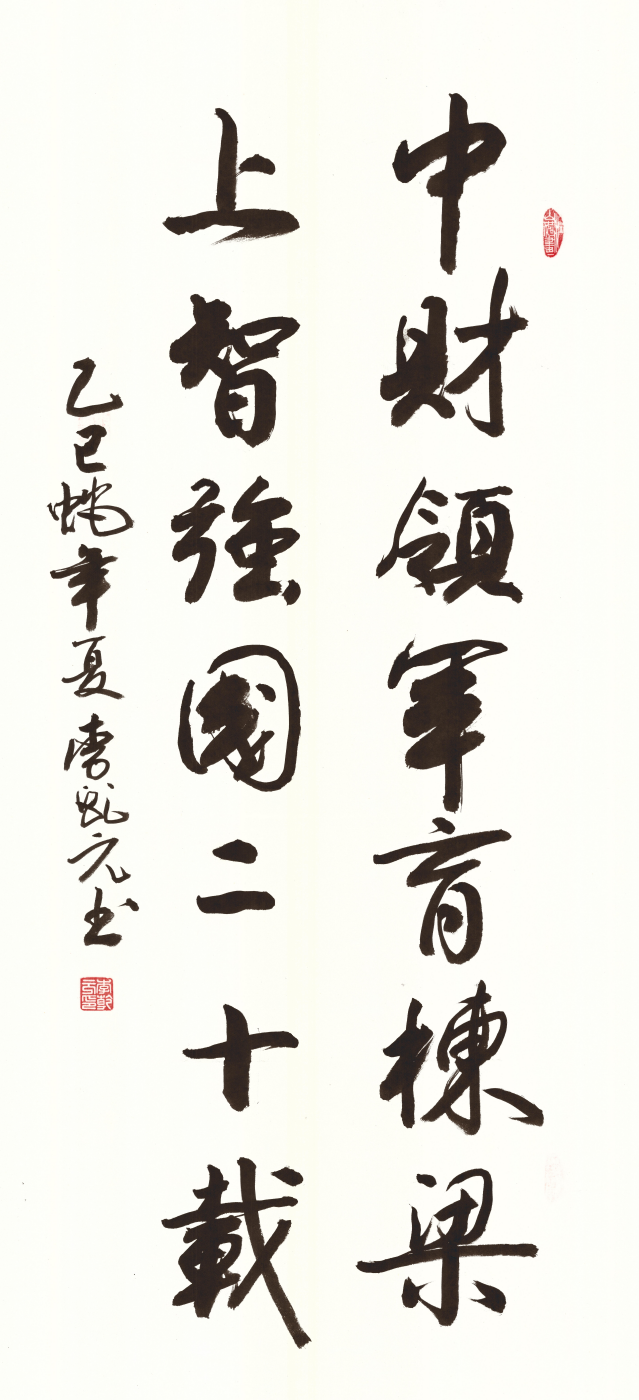 中財領軍育棟梁
上智強國二十載
乙巳蛇年夏李乾元书